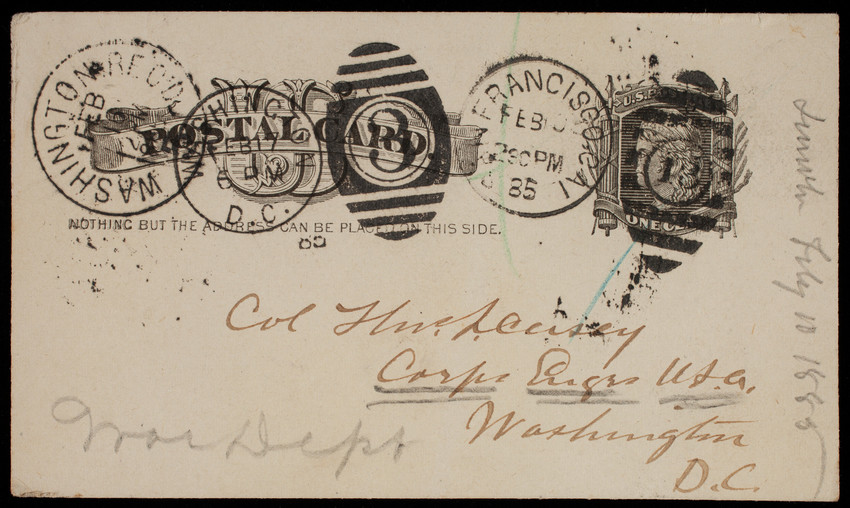 WASHINGTON REC'D
FEB
WASHING
FEB 17
6 PM
D.C.
85
3
POSTAL CARD.
NOTHING BUT THE ADDRESS CAN BE PLACED ON THIS SIDE.
FRANCISCO CAL
FEB
30 PM
85
U.S. POSTAL
1
ONE C
Col Thos. L. Casey
Corps Engrs U.S.A.
Washington
D.C.
War Dept
Feby 10 1885